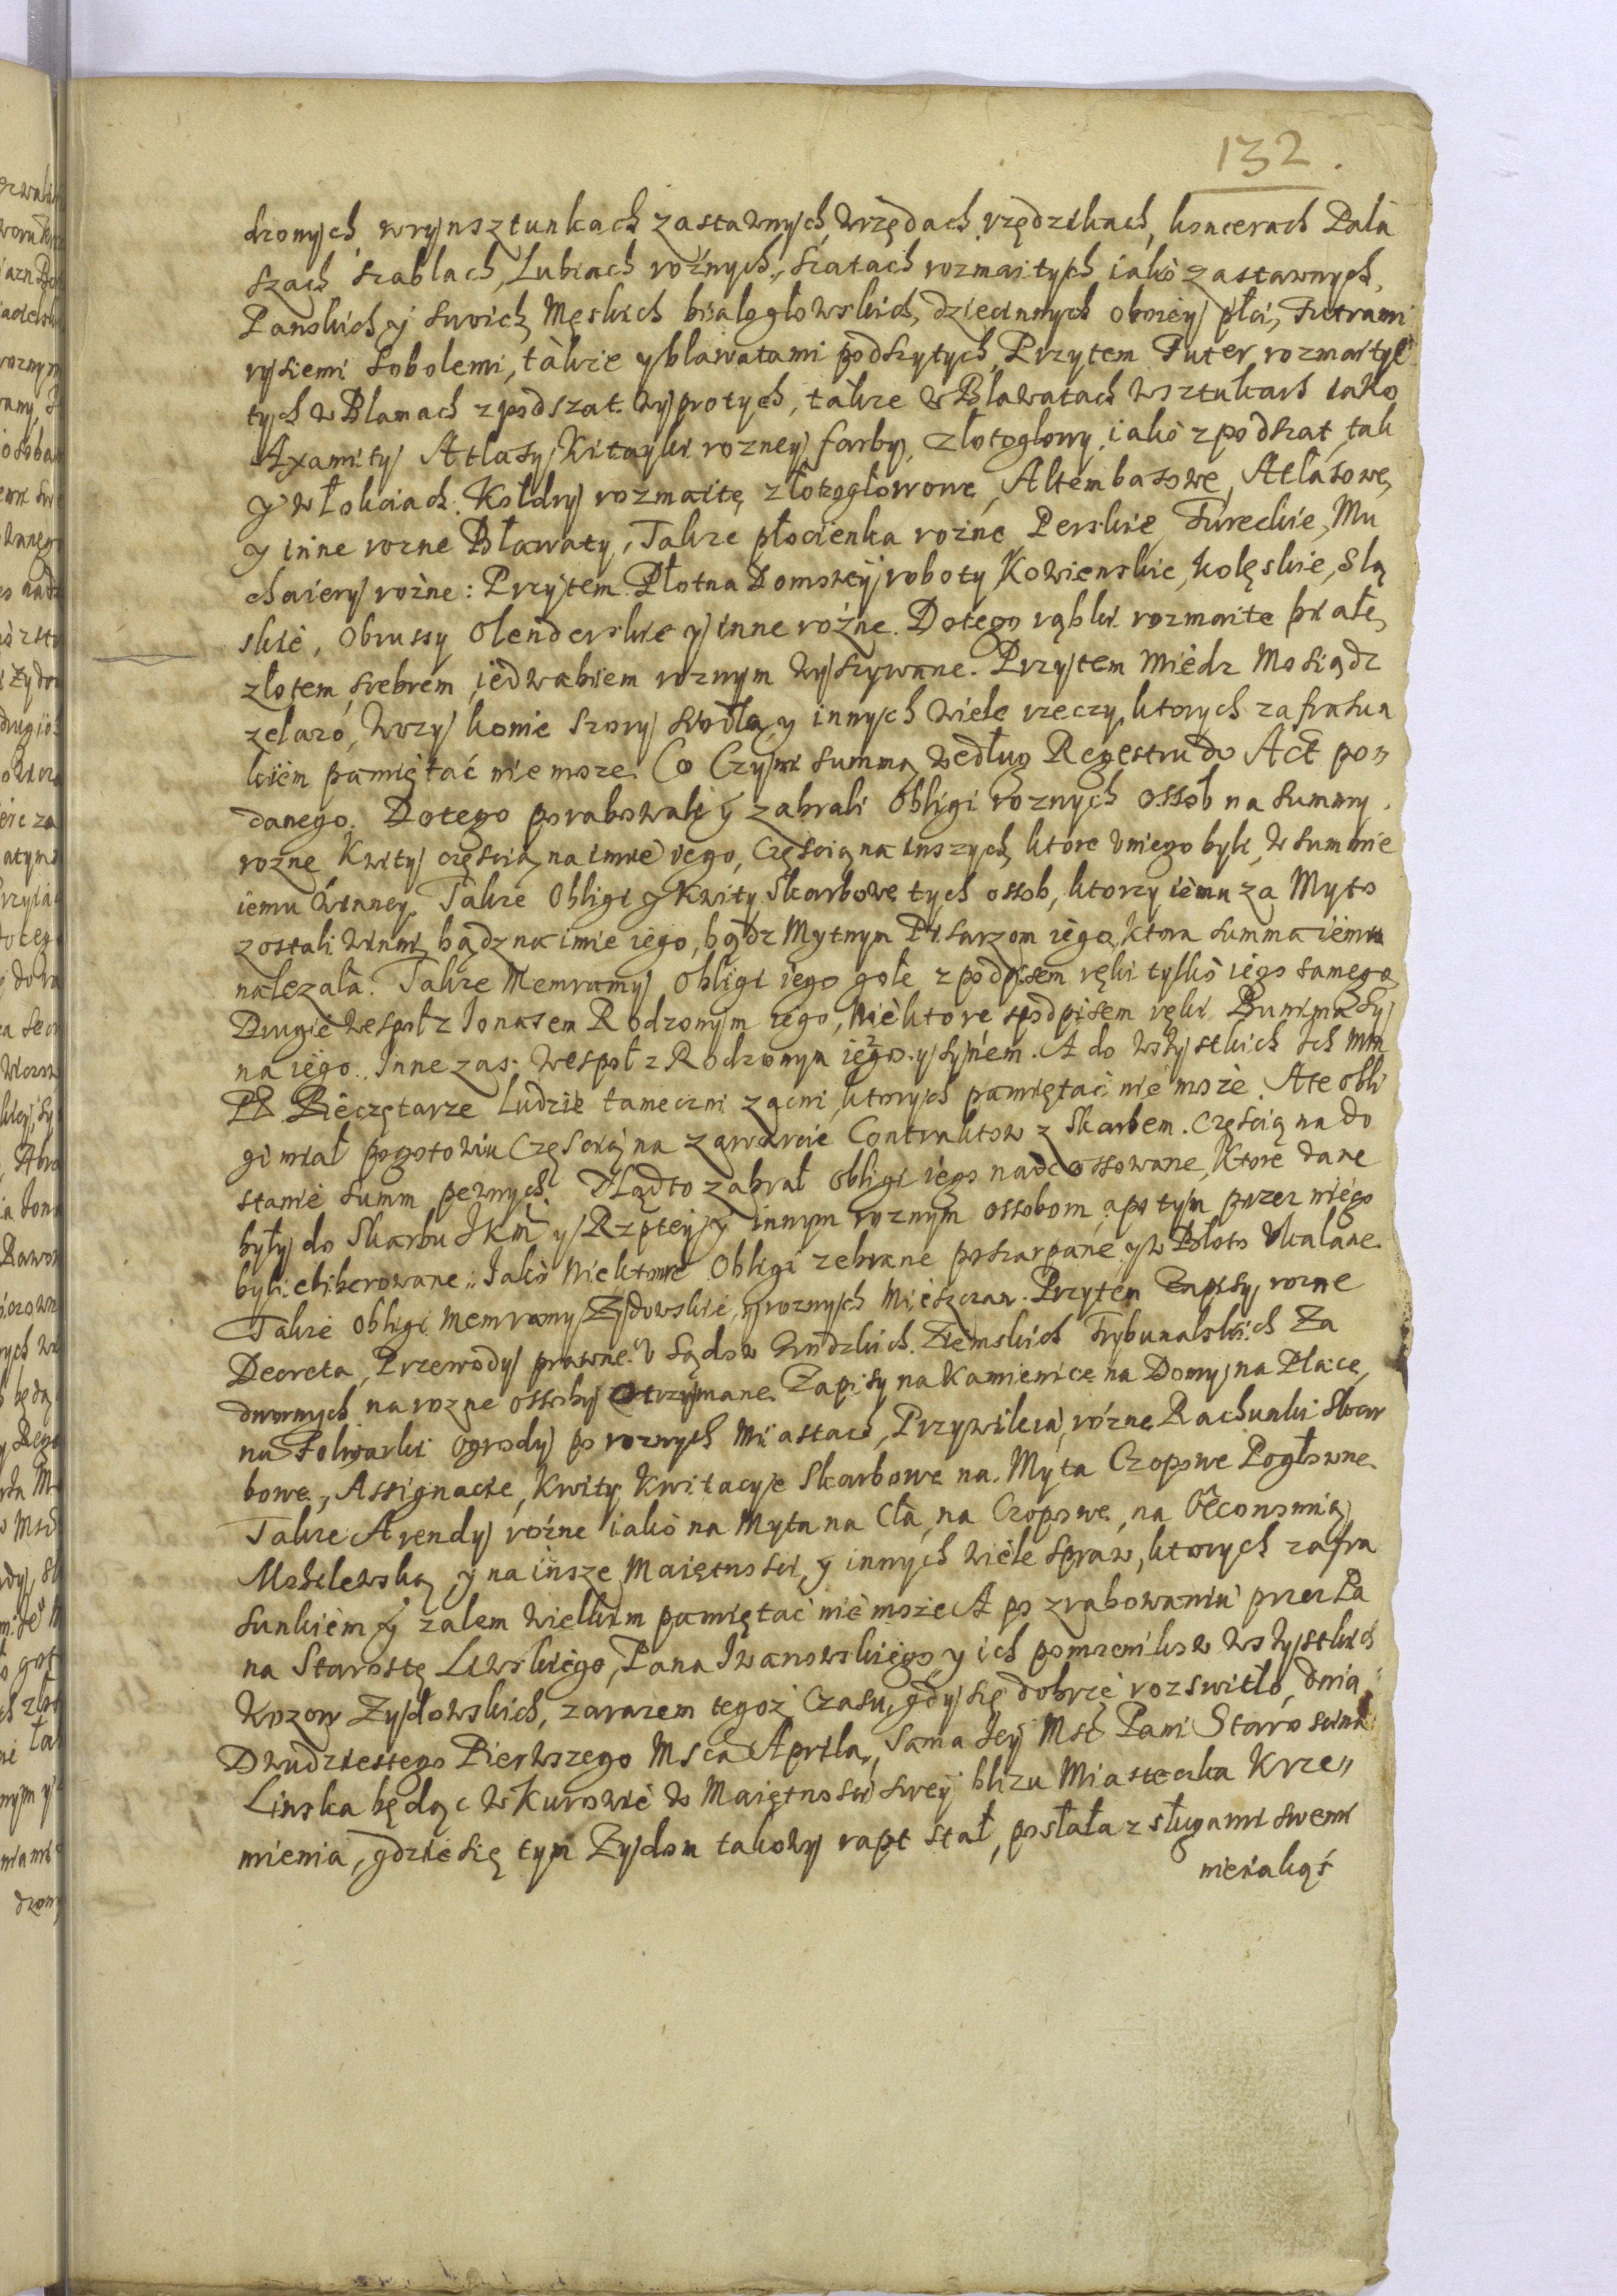 132.
dzonych, wrynsztunkach zastawnych, wrzędach, rzędzikach, koncerach Pala
szach szablach, Lubiach roźnych, szatach rozmaitych iako zastawnych,
Panskich y swoich, Męskich białogłowskich, dziecinnych oboiey płci, Futrami
rysiemi sobolemi, także y bławatami podszytych, Przytem Futer rozmaityc
tych w Blamach zpodszat wyprotych, także w Bławatach wsztukach iako
Axamity Atlasy Kitayki rozney farby, złotogłowy, iako z podszat, tak
y włokciach. Kołdry rozmaite złotogłowowe, Altembasowe, Atlasowe,
y inne rozne Bławaty, Także płocienka rożne Perskie, Tureckie, Mu
chaiery rożne: Przytem Płotna Domowey roboty Kowienskie, kolęskie, Slą
skie, Obrussy Olenderskie y inne rożne. Dotego rąbki rozmaite białe,
złotem, srebrem, iedwabiem roznym wyszywane. Przytem Miedz Mosiądz
zelazo, Wozy konie szory siodła, y innych wiele rzeczy, ktorych zafrasun
kiem pamiętać nie może. Co Czyni summą według Regestru do Act po„
danego. Dotego porabowali y zabrali Obligi roznych ossob na summy
rozne Kwity częscią na imie iego, Częscią na inszych, ktore uniego byli w summie
iemu winney. Także Obligi y Kwity Skarbowe tych ossob, ktorzy iemu za Myto
zostali winni, bądz na imie iego, bądz Mytnym Pisarzom iego, ktora summa iemu
nalezała. Także Memramy Obligi iego gołe z podpisem ręki tylko iego samego
Drugie wespoł z Jonasem Rodzonym iego, Niektore spodpisem ręki Bunima Sy
na iego. Inne zas wespoł z Rodzonym iego y synem. A do wszystkich ich
PP. Pieczętarze Ludzie tameczni zacni, ktorych pamiętać nie może. A te obli
gi miał pogotowiu Częscią na zawarcie Contraktow z Skarbem. Częscią na do
stanie summ pewnych. Nądto zabrał obligi iego nadcossowane, Ktore dane
były do Skarbu JKM y Rzptey y innym roznym ossobom, a po tym przez niego
byli eliberowane. Jako niektore Obligi zebrane poszarpane y w Błoto Wkalane.
Także Obligi Memramy Zydowskie, y roznych Mieszczan. Przytem Zapisy rozne
Decreta, Przewody prawne. U Sądow Grodzkich. Ziemskich Trybunalskich Za
dwornych na rozne ossoby otrzymane. Zapisy na Kamienice na Domy, na Place,
na Folwarki Ogrody po roznych Miastach, Przywileia, rózne Rachunki Skar
bowe, Assignacie, Kwity Kwitacyie Skarbowe na Myta Czopowe Pogłowne.
Także Arendy rożne iako na Myta na Cła, na Czopowe, na Oeconomią
Mohilewską, y na insze Maiętnosci, y innych wiele spraw, ktorych zafra
sunkiem y zalem wielkim pamiętać nie może. A po zrabowaniu przez Pa
na Starostę Liwskiego, Pana Iwanowskiego, y ich pomocnikow wszystkich
Wozow Zydowskich, zarazem tegoż Czasu, gdy się dobrze rozswitło, dnia
Dwudziestego Pierwszego Msca Aprila, Sama Iey Msc Pani Staroscina
Liwska będąc w Kurowie w Maiętnosci swey blizu Miasteczka Krze„
mienia, gdzie się tym Zydom takowy rapt stał, posłała z sługami swemi
nieiakąś